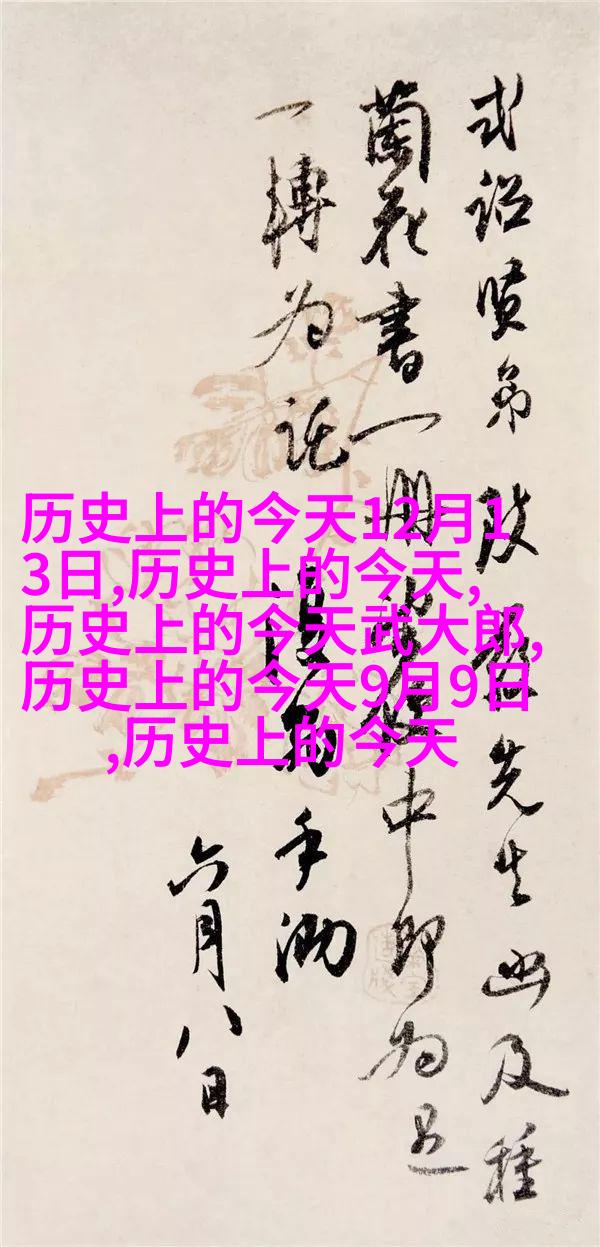 历史上的今天12月1
3日,历史上的今天,
历史上的今天武大郎,
历史上的今天9月9日
,历史上的今天
式詔賢弟 致 先生函及種
蘭花書一册 中即为
一轉为託 手泐
六月八日